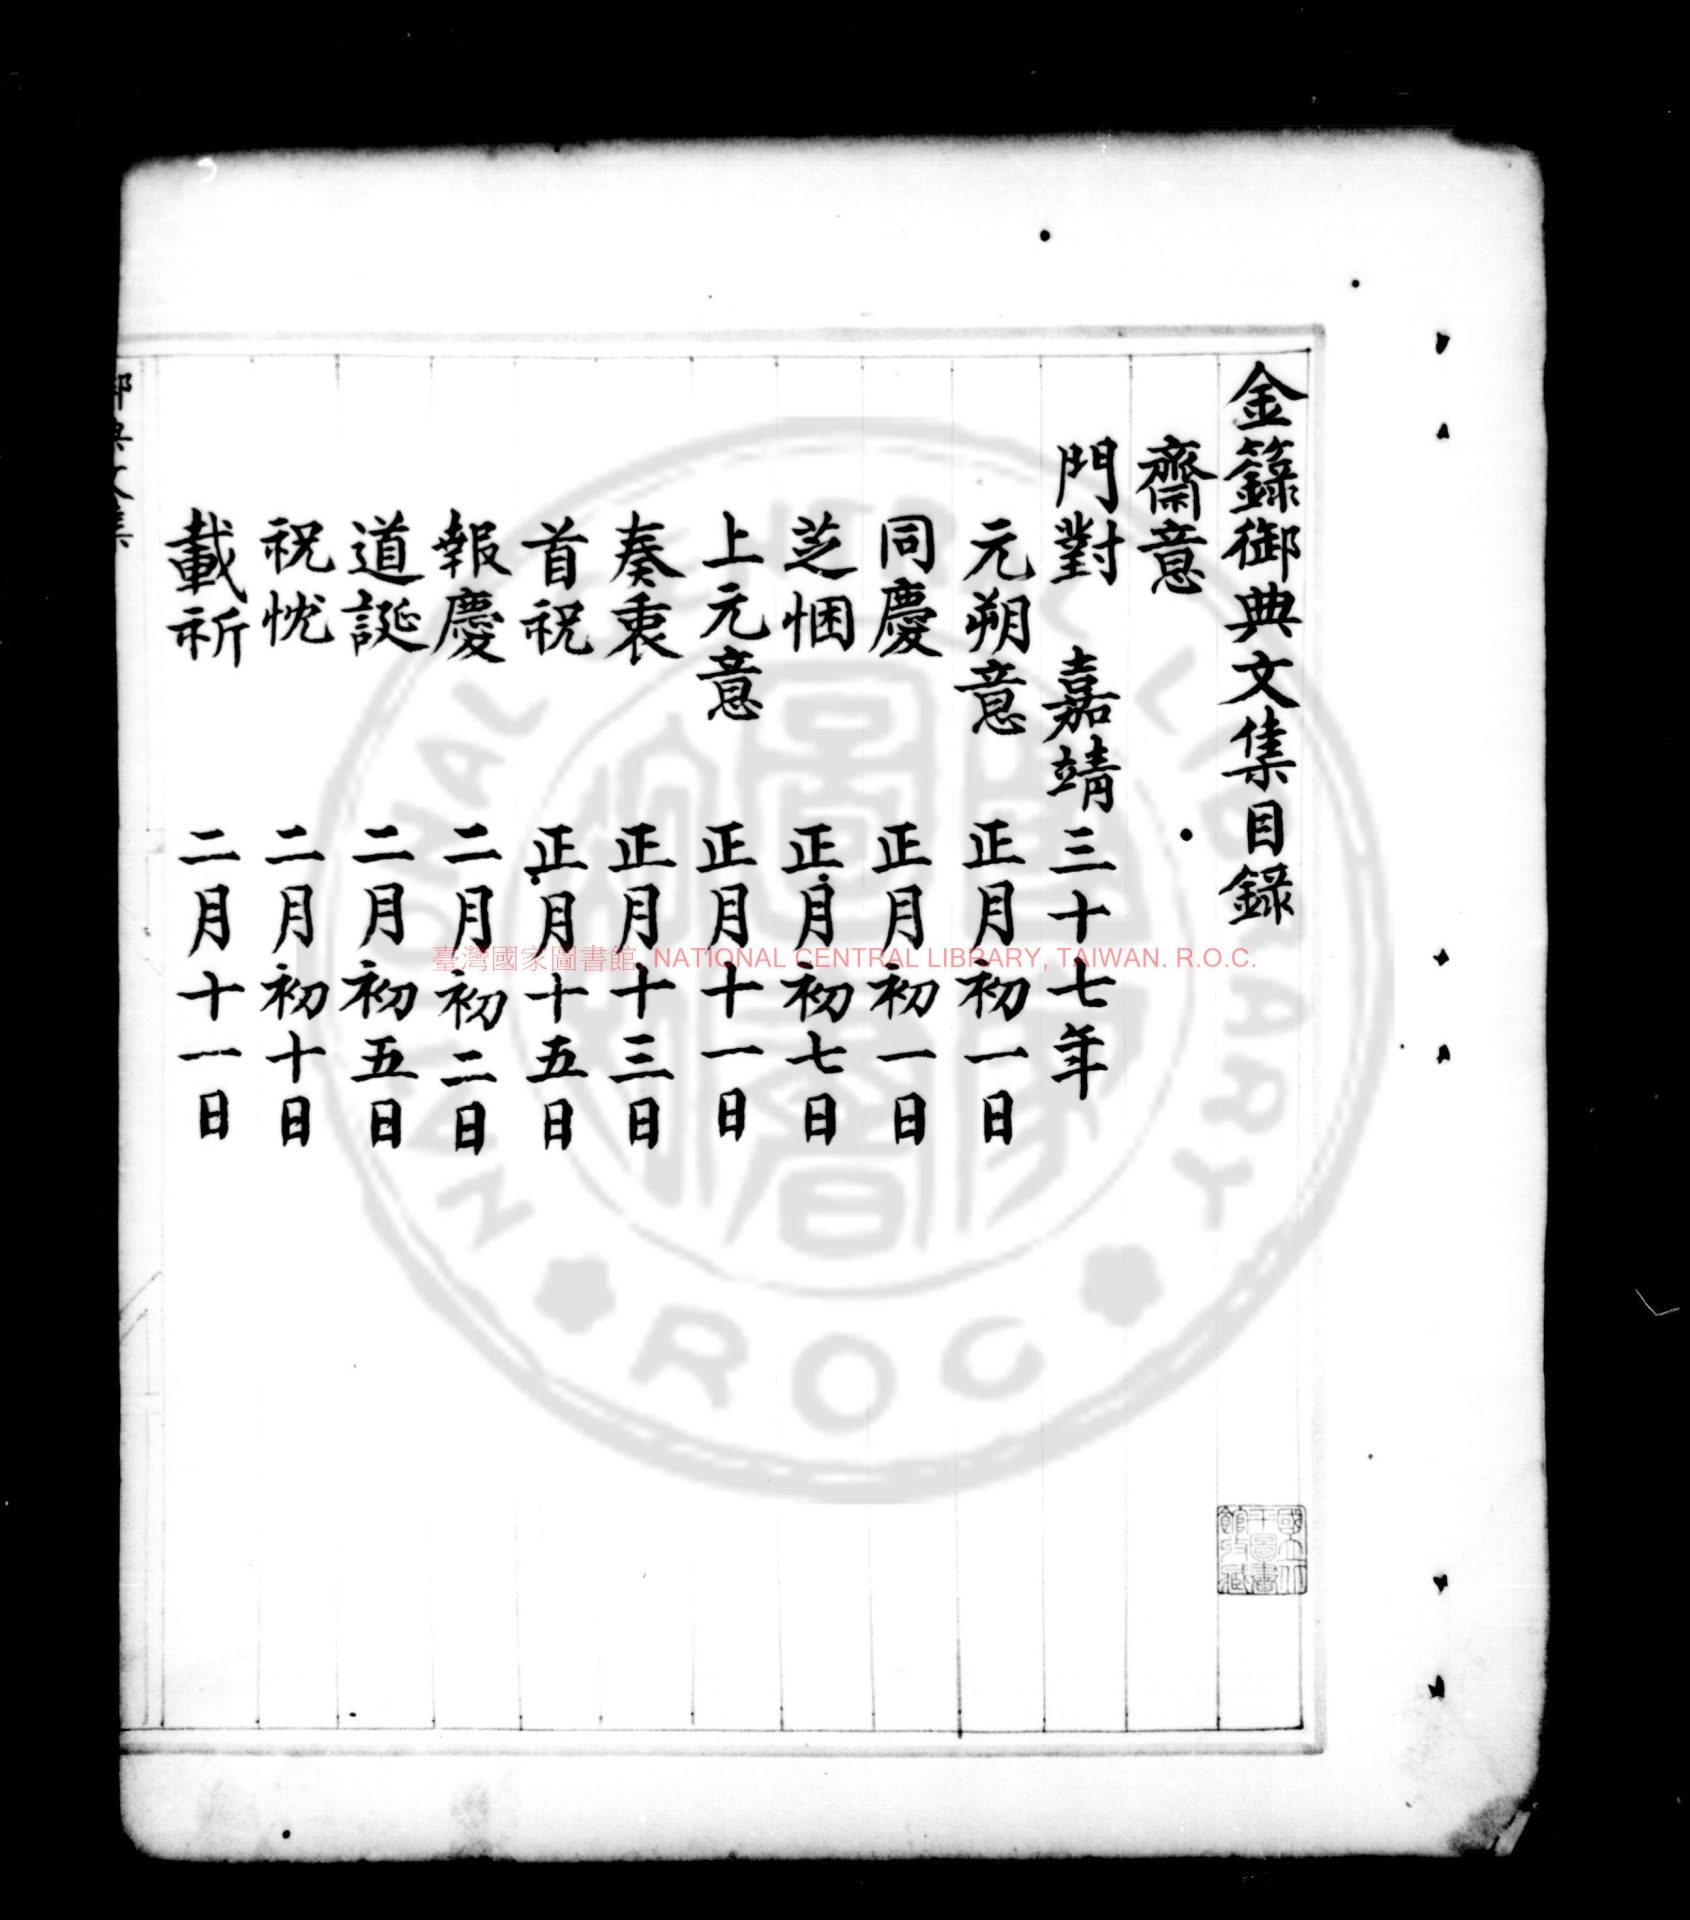 金籙御典文集目錄
齋意
門對 嘉靖三十七年
元朔意 正月初一日
同慶 正月初一日
芝悃 正月初七日
上元意 正月十一日
奏衷 正月十三日
首祝 正月十五日
報慶 二月初二日
道誕 二月初五日
祝忱 二月初十日
載祈 二月十一日
臺灣國家圖書館, NATIONAL CENTRAL LIBRARY, TAIWAN. R.O.C.
NATIONAL CENTRAL LIBRARY
ROC